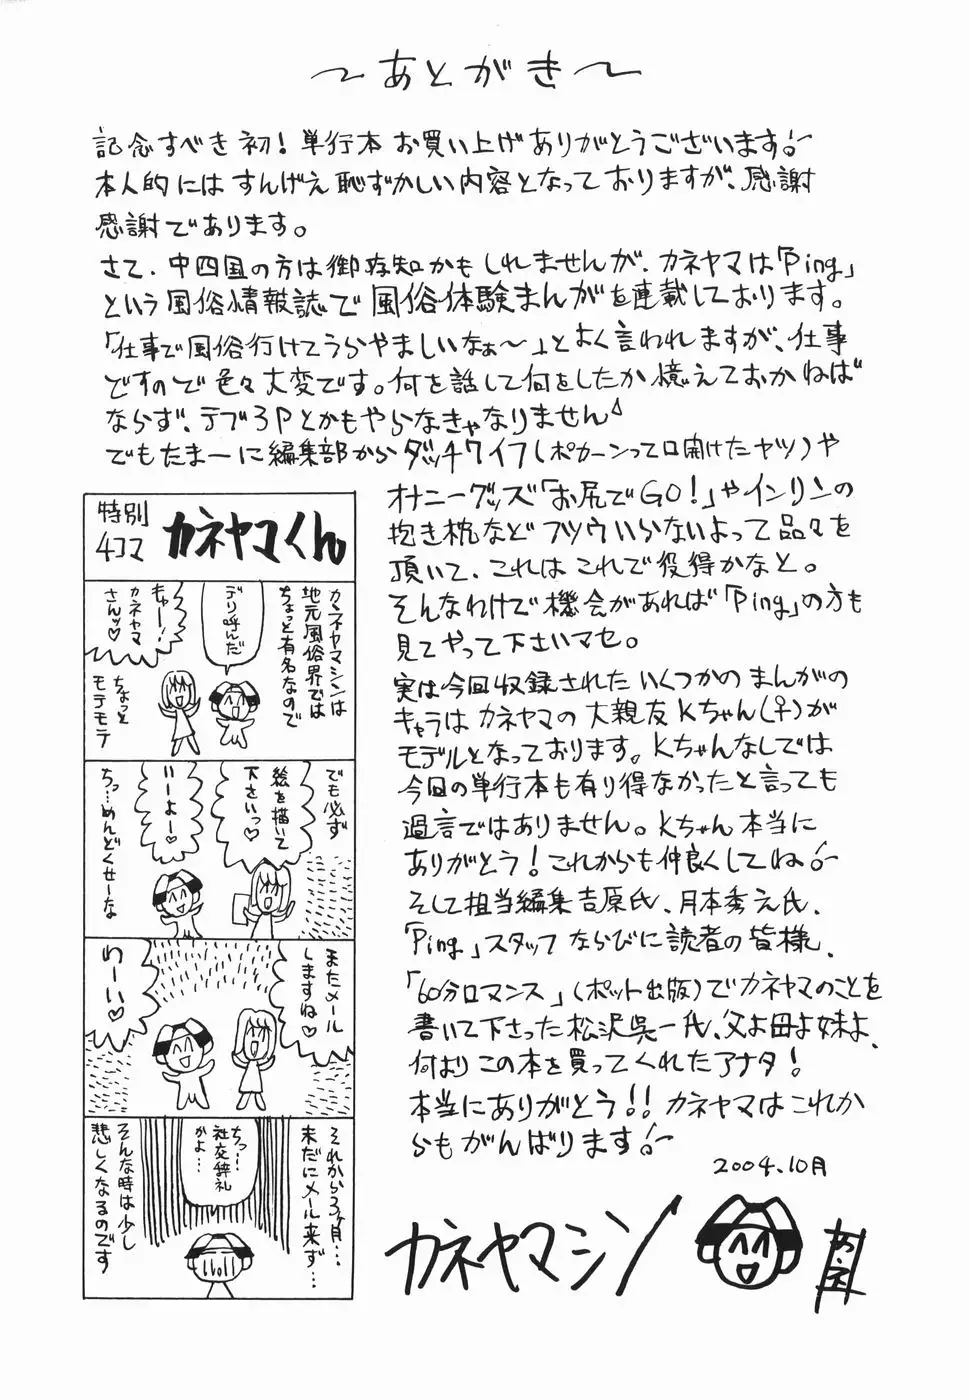 〜あとがき〜
記念すべき初!単行本お買い上げありがとうございます!
本人的にはすんげえ恥ずかしい内容となっておりますが、感謝
感謝であります。
さて、中四国の方は御存知かもしれませんが、カネヤマは「Ping」
という風俗情報誌で風俗体験まんがを連載しております。
「仕事で風俗行けてうらやましいなぁ〜」とよく言われますが、仕事
ですので色々大変です。何を話して何をしたか憶えておかねば
ならず、デブ3Pとかもやらなきゃなりません
でもたまーに編集部からダッチワイフ(ポカーンって口開けたヤツ)や
オナニーグッズ「お尻でGO!」やインリンの
抱き枕などフツウいらないよって品々を
頂いて、これはこれで役得かなと。
そんなわけで機会があれば「Ping」の方も
見てやって下さいマセ。
実は今回収録されたいくつかのまんがの
キャラはカネヤマの大親友Kちゃん(♀)が
モデルとなっております。Kちゃんなしでは
今回の単行本も有り得なかったと言っても
過言ではありません。Kちゃん本当に
ありがとう!これからも仲良くしてね!
そして担当編集吉原氏、月本秀之氏、
「Ping」スタッフならびに読者の皆様、
「60分ロマンス」(ポット出版)でカネヤマのことを
書いて下さった松沢呉一氏、父よ母よ妹よ、
何よりこの本を買ってくれたアナタ!
本当にありがとう!!カネヤマはこれか
らもがんばります!
2004.10月
カネヤマシン
特別
4コマ
カネヤマくん
カネヤマシンは
地元風俗界では
ちょっと有名なので
デリ呼んだ
キャー!
カネヤマ
さんッ♡
ちょっと
モテモテ
でも必ず
絵を描いて
下さいっ♡
いーよー♡
ちっ…めんどくせーな
またメール
しますね♡
わーい♡
それから3ヶ月…
未だにメール来ず…
ちっ…
社交辞礼
かよ…
そんな時は少し
悲しくなるのです